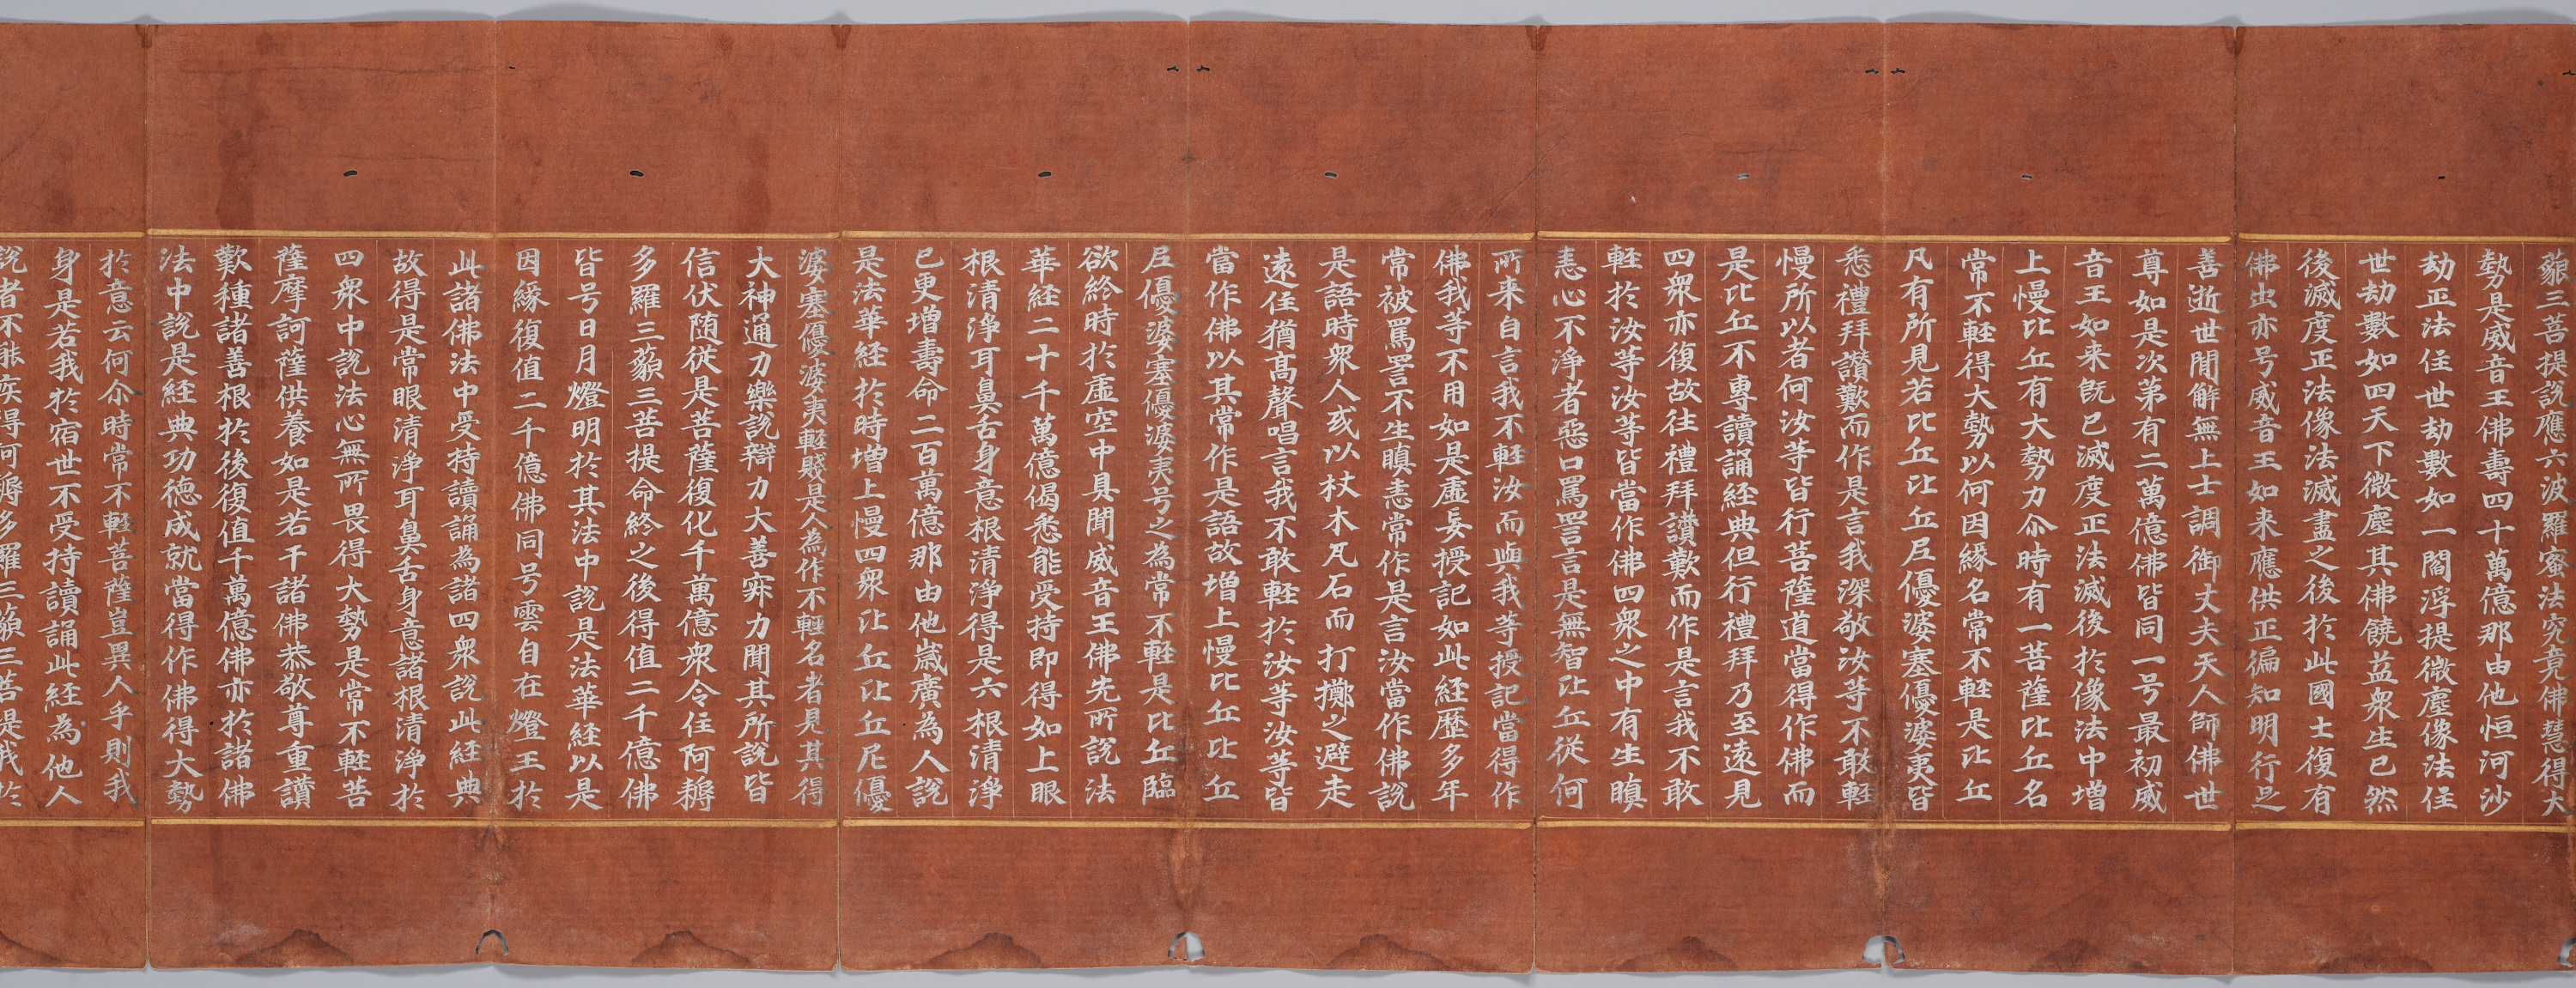 藐三菩提說應六波羅蜜法究竟佛慧得大
勢是威音王佛壽四十萬億那由他恒河沙
劫正法住世劫數如一閻浮提微塵像法住
世劫數如四天下微塵其佛饒益衆生已然
後滅度正法像法滅盡之後於此國土復有
佛出亦号威音王如来應供正徧知明行足
善逝世間解無上士調御丈夫天人師佛世
尊如是次第有二萬億佛皆同一号最初威
音王如来旣已滅度正法滅後於像法中增
上慢比丘有大勢力尒時有一菩薩比丘名
常不輕得大勢以何因緣名常不輕是比丘
凡有所見若比丘比丘尼優婆塞優婆夷皆
悉禮拜讃歎而作是言我深敬汝等不敢輕
慢所以者何汝等皆行菩薩道當得作佛而
是比丘不專讀誦經典但行禮拜乃至遠見
四衆亦復故往禮拜讃歎而作是言我不敢
輕於汝等汝等皆當作佛四衆之中有生瞋
恚心不淨者惡口罵詈言是無智比丘從何
所来自言我不輕汝而與我等授記當得作
佛我等不用如是虛妄授記如此經歷多年
常被罵詈不生瞋恚常作是言汝當作佛說
是語時衆人或以杖木凡石而打擲之避走
遠住猶高聲唱言我不敢輕於汝等汝等皆
當作佛以其常作是語故增上慢比丘比丘
尼優婆塞優婆夷号之為常不輕是比丘臨
欲終時於虛空中具聞威音王佛先所說法
華經二十千萬億偈悉能受持即得如上眼
根清淨耳鼻舌身意根清淨得是六根清淨
已更增壽命二百萬億那由他歲廣為人說
是法華經於時增上慢四衆比丘比丘尼優
婆塞優婆夷輕賤是人為作不輕名者見其得
大神通力樂說辯力大善寂力聞其所說皆
信伏随從是菩薩復化千萬億衆令住阿耨
多羅三藐三菩提命終之後得值二千億佛
皆号日月燈明於其法中說是法華經以是
因緣復值二千億佛同号雲自在燈王於
此諸佛法中受持讀誦為諸四衆說此經典
故得是常眼清淨耳鼻舌身意諸根清淨於
四衆中說法心無所畏得大勢是常不輕菩
薩摩訶薩供養如是若干諸佛恭敬尊重讃
歎種諸善根於後復值千萬億佛亦於諸佛
法中說是經典功德成就當得作佛得大勢
於意云何尒時常不輕菩薩豈異人乎則我
身是若我於宿世不受持讀誦此經為他人
說者不能疾得阿耨多羅三藐三菩提我於